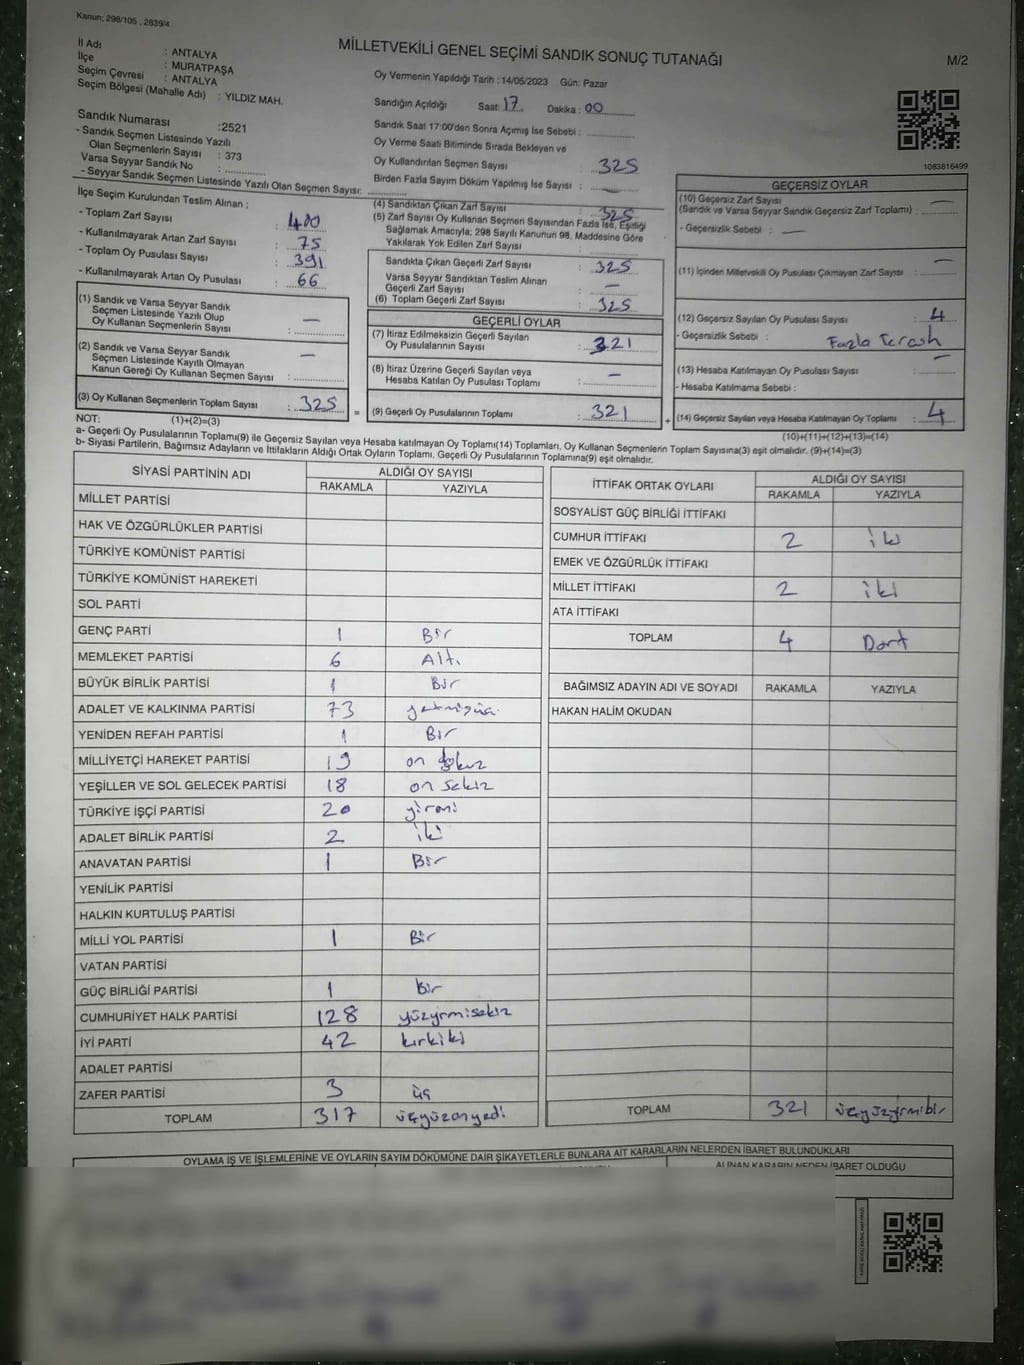 Kanun; 298/105 , 2839/4
MİLLETVEKİLİ GENEL SEÇİMİ SANDIK SONUÇ TUTANAĞI
M/2
İl Adı : ANTALYA
İlçe : MURATPAŞA
Seçim Çevresi : ANTALYA
Seçim Bölgesi (Mahalle Adı) : YILDIZ MAH.
Oy Vermenin Yapıldığı Tarih : 14/05/2023 Gün: Pazar
Sandığın Açıldığı Saat: 17 Dakika : 00
Sandık Saat 17:00'den Sonra Açımış İse Sebebi :
Oy Verme Saati Bitiminde Sırada Bekleyen ve
Oy Kullandırılan Seçmen Sayısı 325
Birden Fazla Sayım Döküm Yapılmış İse Sayısı : —
1083816499
Sandık Numarası :2521
- Sandık Seçmen Listesinde Yazılı
Olan Seçmenlerin Sayısı : 373
Varsa Seyyar Sandık No :
- Seyyar Sandık Seçmen Listesinde Yazılı Olan Seçmen Sayısı:
İlçe Seçim Kurulundan Teslim Alınan ;
- Toplam Zarf Sayısı : 400
- Kullanılmayarak Artan Zarf Sayısı : 75
- Toplam Oy Pusulası Sayısı : 391
- Kullanılmayarak Artan Oy Pusulası : 66
(1) Sandık ve Varsa Seyyar Sandık
Seçmen Listesinde Yazılı Olup
Oy Kullanan Seçmenlerin Sayısı : —
(2) Sandık ve Varsa Seyyar Sandık
Seçmen Listesinde Kayıtlı Olmayan
Kanun Gereği Oy Kullanan Seçmen Sayısı : —
(3) Oy Kullanan Seçmenlerin Toplam Sayısı : 325
(1)+(2)=(3)
(4) Sandıktan Çıkan Zarf Sayısı : 325
(5) Zarf Sayısı Oy Kullanan Seçmen Sayısından Fazla İse, Eşitliği
Sağlamak Amacıyla; 298 Sayılı Kanunun 98. Maddesine Göre
Yakılarak Yok Edilen Zarf Sayısı :
Sandıkta Çıkan Geçerli Zarf Sayısı : 325
Varsa Seyyar Sandıktan Teslim Alınan
Geçerli Zarf Sayısı : —
(6) Toplam Geçerli Zarf Sayısı : 325
GEÇERLİ OYLAR
(7) İtiraz Edilmeksizin Geçerli Sayılan
Oy Pusulalarının Sayısı : 321
(8) İtiraz Üzerine Geçerli Sayılan veya
Hesaba Katılan Oy Pusulası Toplamı : —
= (9) Geçerli Oy Pusulalarının Toplamı : 321 +
GEÇERSİZ OYLAR
(10) Geçersiz Zarf Sayısı
(Sandık ve Varsa Seyyar Sandık Geçersiz Zarf Toplamı) : —
- Geçersizlik Sebebi : —
(11) İçinden Milletvekili Oy Pusulası Çıkmayan Zarf Sayısı : —
(12) Geçersiz Sayılan Oy Pusulası Sayısı : 4
- Geçersizlik Sebebi : Fazla Tercih
(13) Hesaba Katılmayan Oy Pusulası Sayısı : —
- Hesaba Katılmama Sebebi :
(14) Geçersiz Sayılan veya Hesaba Katılmayan Oy Toplamı : 4
(10)+(11)+(12)+(13)=(14)
NOT:
a- Geçerli Oy Pusulalarının Toplamı(9) ile Geçersiz Sayılan veya Hesaba katılmayan Oy Toplamı(14) Toplamları, Oy Kullanan Seçmenlerin Toplam Sayısına(3) eşit olmalıdır. (9)+(14)=(3)
b- Siyasi Partilerin, Bağımsız Adayların ve İttifakların Aldığı Ortak Oyların Toplamı, Geçerli Oy Pusulalarının Toplamına(9) eşit olmalıdır.
SİYASİ PARTİNİN ADI ALDIĞI OY SAYISI
RAKAMLA YAZIYLA
MİLLET PARTİSİ
HAK VE ÖZGÜRLÜKLER PARTİSİ
TÜRKİYE KOMÜNİST PARTİSİ
TÜRKİYE KOMÜNİST HAREKETİ
SOL PARTİ
GENÇ PARTİ 1 Bir
MEMLEKET PARTİSİ 6 Altı
BÜYÜK BİRLİK PARTİSİ 1 Bir
ADALET VE KALKINMA PARTİSİ 73 yetmişüç
YENİDEN REFAH PARTİSİ 1 Bir
MİLLİYETÇİ HAREKET PARTİSİ 19 on dokuz
YEŞİLLER VE SOL GELECEK PARTİSİ 18 on sekiz
TÜRKİYE İŞÇİ PARTİSİ 20 yirmi
ADALET BİRLİK PARTİSİ 2 iki
ANAVATAN PARTİSİ 1 Bir
YENİLİK PARTİSİ
HALKIN KURTULUŞ PARTİSİ
MİLLİ YOL PARTİSİ 1 Bir
VATAN PARTİSİ
GÜÇ BİRLİĞİ PARTİSİ 1 bir
CUMHURİYET HALK PARTİSİ 128 yüzyirmisekiz
İYİ PARTİ 42 kırkiki
ADALET PARTİSİ
ZAFER PARTİSİ 3 üç
TOPLAM 317 üçyüzonyedi
İTTİFAK ORTAK OYLARI ALDIĞI OY SAYISI
RAKAMLA YAZIYLA
SOSYALİST GÜÇ BİRLİĞİ İTTİFAKI
CUMHUR İTTİFAKI 2 iki
EMEK VE ÖZGÜRLÜK İTTİFAKI
MİLLET İTTİFAKI 2 iki
ATA İTTİFAKI
TOPLAM 4 Dört
BAĞIMSIZ ADAYIN ADI VE SOYADI RAKAMLA YAZIYLA
HAKAN HALİM OKUDAN
TOPLAM 321 üçyüzyirmibir
OYLAMA İŞ VE İŞLEMLERİNE VE OYLARIN SAYIM DÖKÜMÜNE DAİR ŞİKAYETLERLE BUNLARA AİT KARARLARIN NELERDEN İBARET BULUNDUKLARI
ALINAN KARARIN NEDEN İBARET OLDUĞU